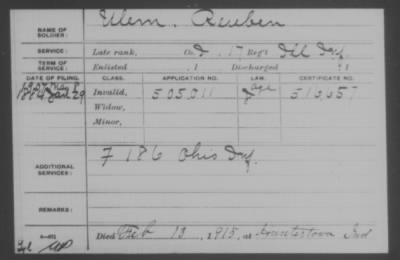 NAME OF SOLDIER: Ulem, Reuben
SERVICE: Late rank, Co. D, 17 Reg't Ill Inf.
TERM OF SERVICE: Enlisted , 1 Discharged , 1
DATE OF FILING. CLASS. APPLICATION NO. LAW. CERTIFICATE NO.
Invalid, 505,011 age 510,657
Widow,
Minor,
ADDITIONAL SERVICES: F 186 Ohio Inf.
REMARKS:
Died Feb 13, 1915, at Ind